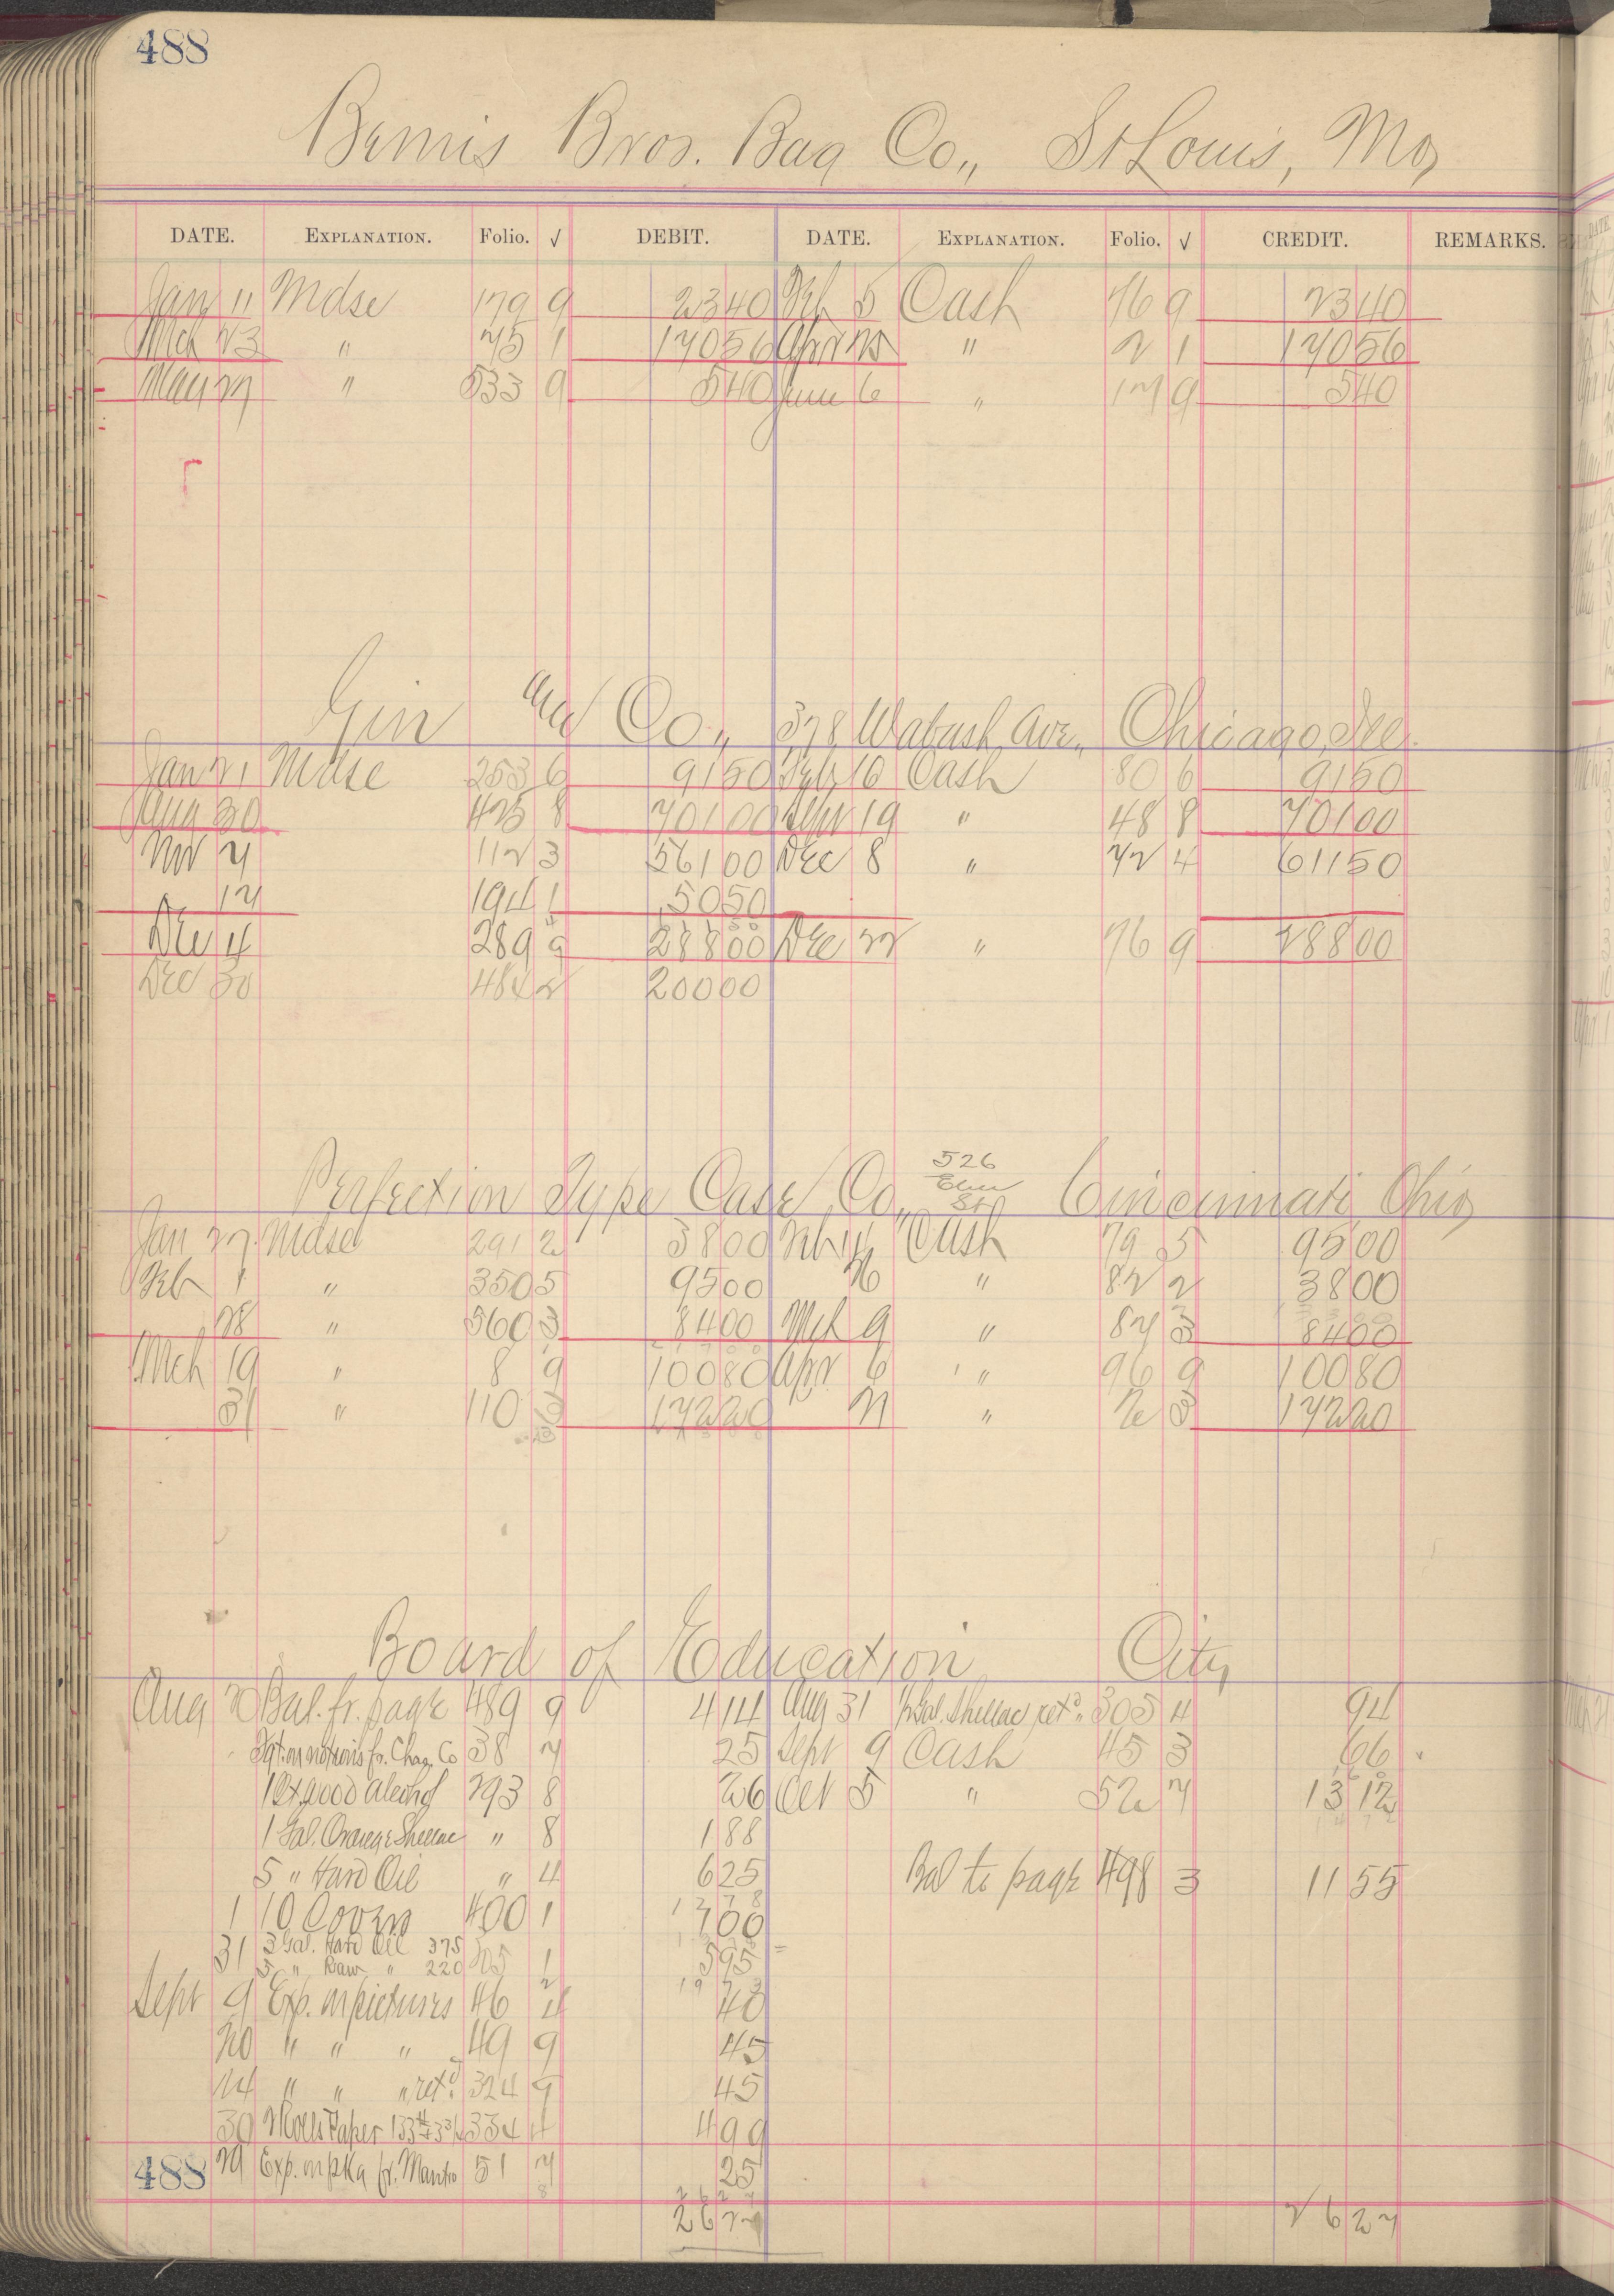 488
Bemis Bros. Bag Co., St Louis, Mo,
DATE. EXPLANATION. Folio. √ DEBIT. DATE. EXPLANATION. Folio. √ CREDIT. REMARKS.
Jan 11 Mdse 179 9 2340 Feb 5 Cash 76 9 2340
Mch 23 " 75 1 17056 Apr 25 " 2 1 17056
May 27 " 533 9 540 June 6 " 17 9 540
Gin Co., 378 Wabash Ave., Chicago, Ill.
Jan 21 Mdse 253 6 9150 Feb 10 Cash 80 6 9150
Aug 30 425 8 70100 Sept 19 " 48 8 70100
Nov 7 112 3 56100 Dec 8 " 72 4 61150
17 194 1 5050
Dec 4 289 9 28800 Dec 22 " 76 9 28800
Dec 30 484 2 20000
526
Elm
St
Perfection Type Case Co., Cincinnati Ohio
Jan 27 Mdse 291 2 3800 Feb 14 Cash 79 5 9500
Feb 1 " 350 5 9500 16 " 82 2 3800
28 " 560 3 8400 Mch 9 " 87 3 8400
Mch 19 " 8 9 10080 Apr 6 " 96 9 10080
31 " 110 3 17220 21 " 2 3 17220
Board of Education City
Aug 20 Bal. fr. page 489 9 414 Aug 31 ½ Gal. Shellac ret'd. 305 4 94
fr. Chag. Co 38 7 25 Sept 9 Cash 45 3 66
1 Qt. Wood Alcohol 293 8 26 Oct 5 " 52 7 1312
1 Gal. Orange Shellac " 8 188
5 " Hard Oil " 4 625 Bal to page 498 3 1155
1 10 Covers 400 1 700
31 3 Gal. Hard Oil 375
5 " Raw " 220 305 1 595
Sept 9 Exp. on pictures 46 4 40
20 " " " 49 9 45
14 " " " ret'd. 324 9 45
30 2 Rolls Paper 334 4 499
488 29 Exp. on pkg fr. 51 7 25
2627 2627